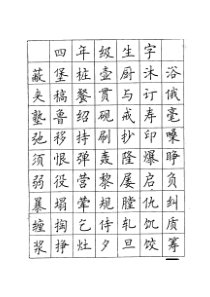 四年级生字
蔽堡桩壶厨沐浴
夹稿餐贯与订俄
塾鲁绍砚戒寿毫
弛移持刷抄印嗓
须恨弹轰隆爆睁
弱役营黎屡启负
暴塌晕规膛仇纠
缠掏乞侍轧饥质
浆挣灶夕旦饺筹